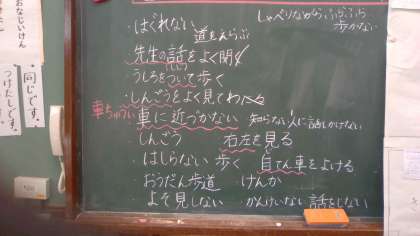 しゃべりながらふらふら
歩かない
・はぐれない
道をえらぶ
・先生の話をよく聞く
・うしろをついて歩く
・しんごうをよく見てわたる
車ちゅうい
車に近づかない
知らない人に話しかけない
・しんごう
右左を見る
・はしらない 歩く
自てん車をよける
おうだん歩道
・けんか
・よそ見しない
かんけいない話をしない
おなじいけん
同じです。
つけたしです。